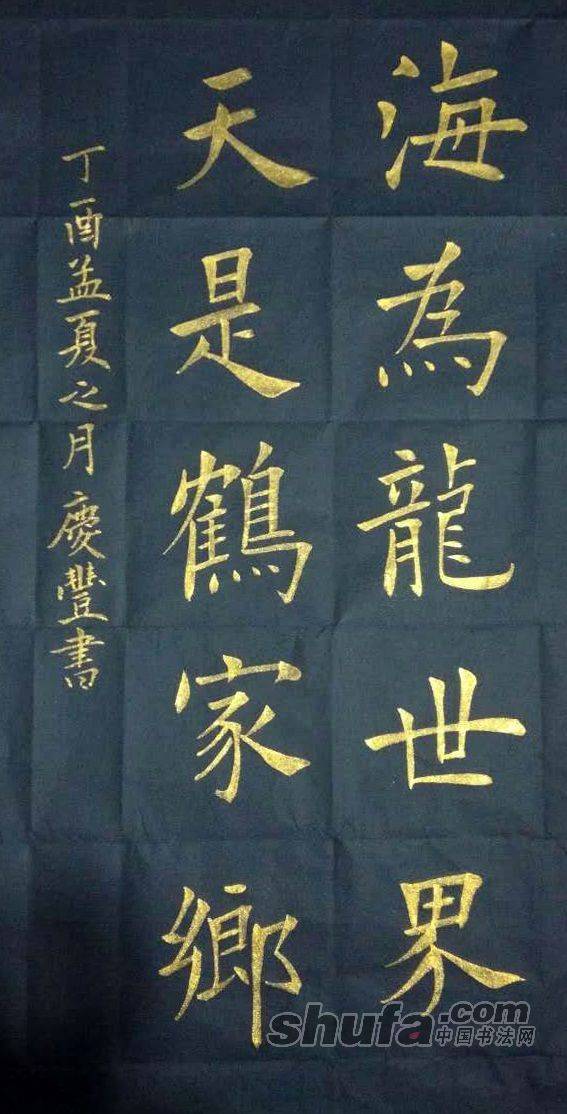 海為龍世界
天是鶴家鄉
丁酉孟夏之月慶豐書
shufa.com
中国书法网